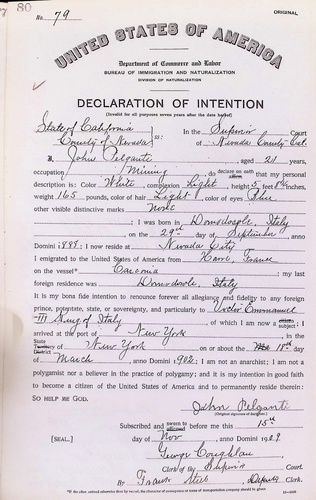 80
ORIGINAL
No. 79
UNITED STATES OF AMERICA
Department of Commerce and Labor
BUREAU OF IMMIGRATION AND NATURALIZATION
DIVISION OF NATURALIZATION
DECLARATION OF INTENTION
(Invalid for all purposes seven years after the date hereof)
State of California ss: In the Superior Court
County of Nevada of Nevada County Cal.
I, John Pelganti, aged 21 years,
occupation Mining, do declare on oath that my personal
description is: Color White, complexion Light, height 5 feet inches,
weight 165 pounds, color of hair Light, color of eyes Blue
other visible distinctive marks None
; I was born in Domodosola, Italy
, on the 29th day of September, anno
Domini 1888; I now reside at Nevada City
I emigrated to the United States of America from Havre, France
on the vessel* ; my last
foreign residence was Domodosola, Italy
It is my bona fide intention to renounce forever all allegiance and fidelity to any foreign
prince, potentate, state, or sovereignty, and particularly to Victor Emmanuel
III King of Italy, of which I am now a subject; I
arrived at the port of New York, in the
State Territory District of New York on or about the 18th day
of March, anno Domini 1902; I am not an anarchist; I am not a
polygamist nor a believer in the practice of polygamy; and it is my intention in good faith
to become a citizen of the United States of America and to permanently reside therein:
SO HELP ME GOD.
John Pelganti
(Original signature of declarant.)
Subscribed and sworn to before me this 15th
[SEAL.] day of Nov, anno Domini 1909
George Coughlan
Clerk of the Superior
By Steel Deputy Clerk.